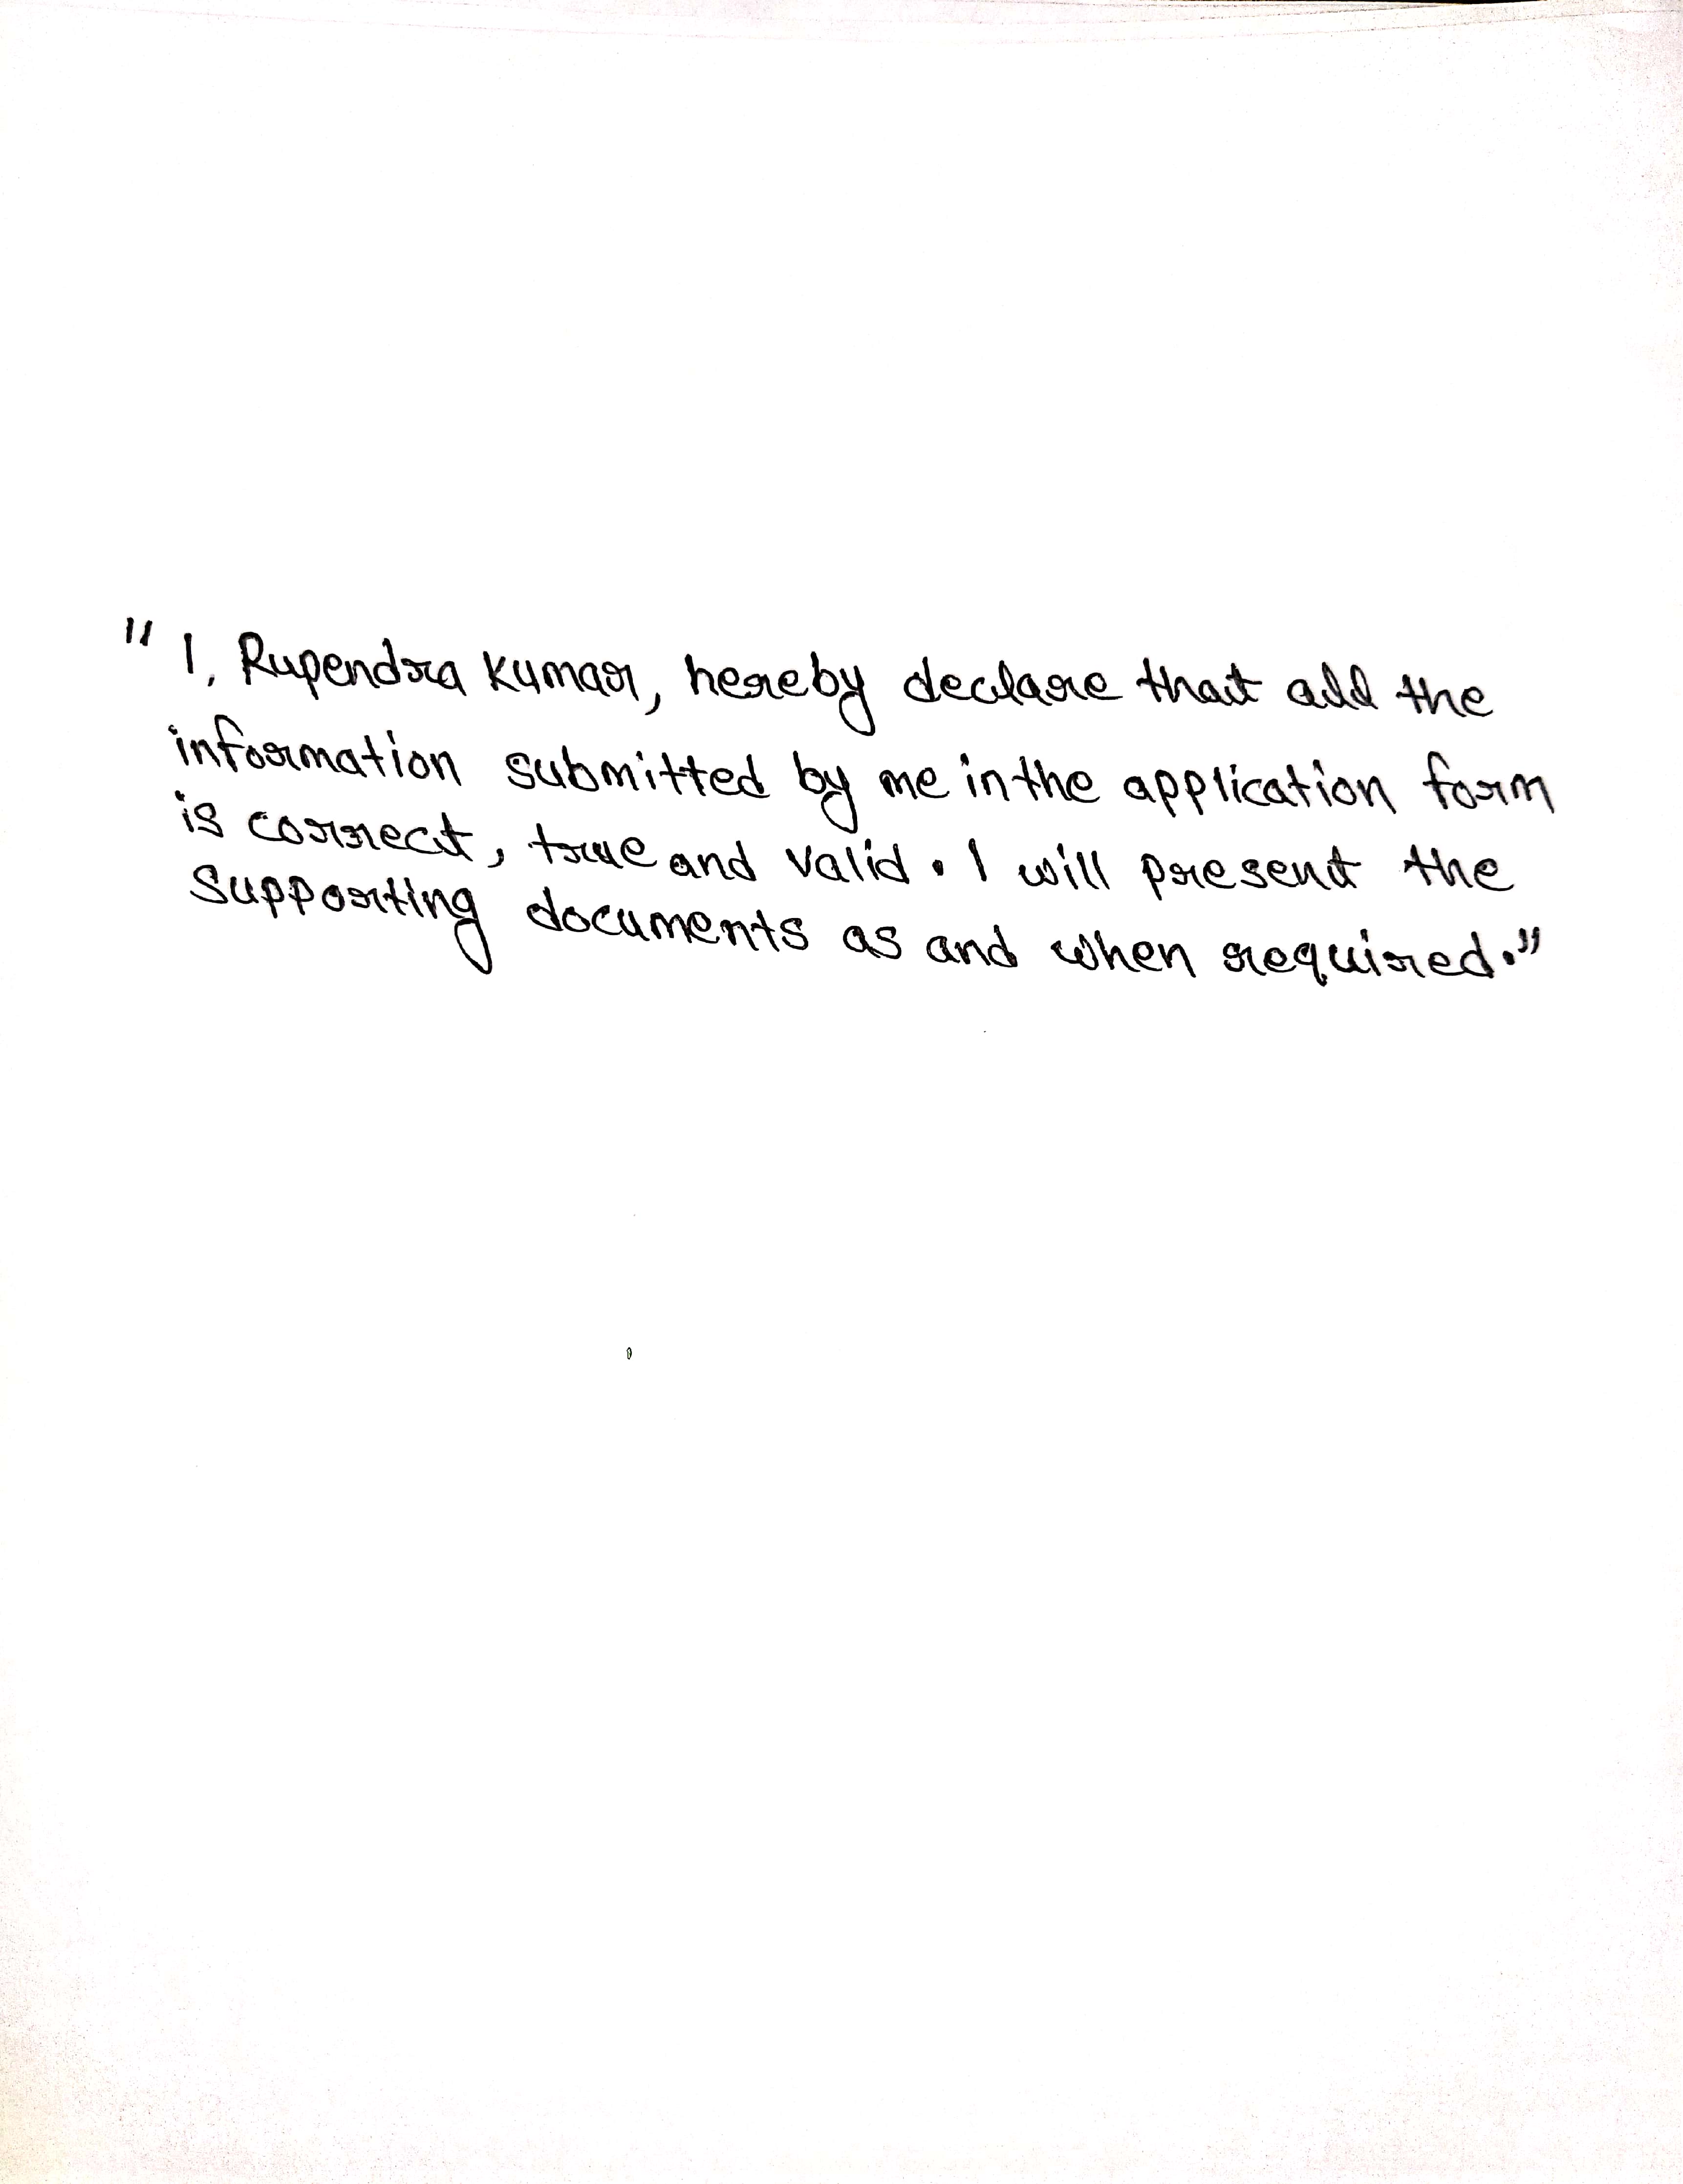 " I, Rupendra Kumar, hereby declare that add the
information submitted by me in the application form
is correct, true and valid. I will present the
supporting documents as and when required."